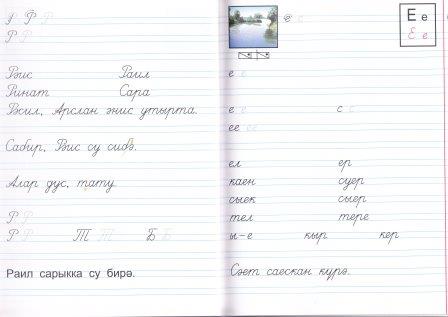 Р Р Р
Р Р
Рәис Раил
Ринат Сара
Рәсил, Арслан энис утырта.
Сабир, Рәис су сибә.
Алар дус, тату.
Р Р
Р Р Т Т Б Б
Раил сарыкка су бирә.
Е е
Е е
е е
е е
е е с с
ее ее
ел ер
каен суер
сыек сыер
тел тере
ы-е кыр кер
Сәет саескан күрә.